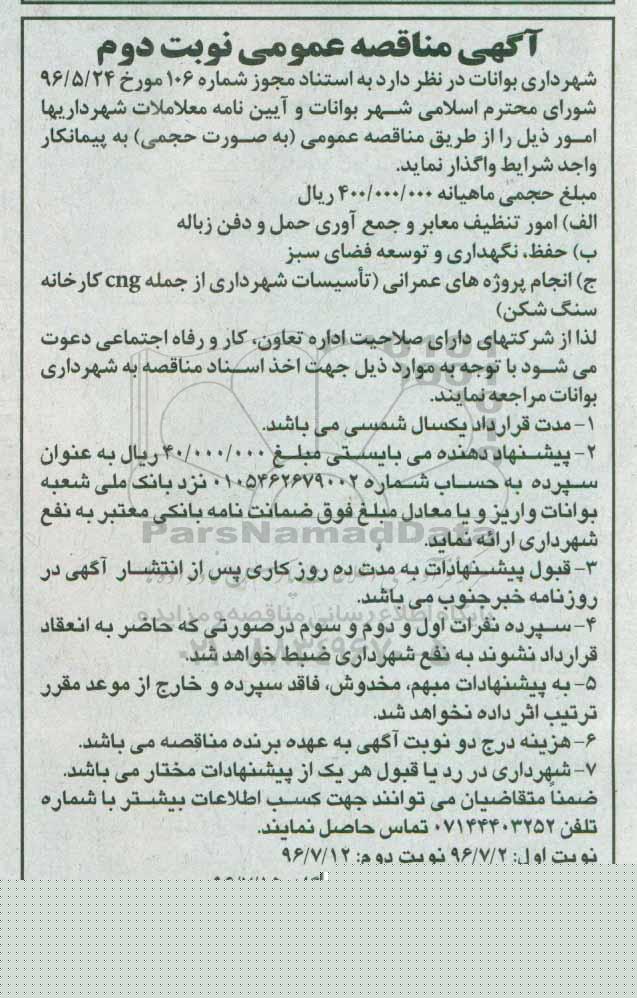 آگهی مناقصه عمومی نوبت دوم
شهرداری بوانات در نظر دارد به استناد مجوز شماره ۱۰۶ مورخ ۹۶/۵/۲۴
شورای محترم اسلامی شهر بوانات و آیین نامه معلاملات شهرداریها
امور ذیل را از طریق مناقصه عمومی (به صورت حجمی) به پیمانکار
واجد شرایط واگذار نماید.
مبلغ حجمی ماهیانه ۴۰۰/۰۰۰/۰۰۰ ریال
الف) امور تنظیف معابر و جمع آوری حمل و دفن زباله
ب) حفظ، نگهداری و توسعه فضای سبز
ج) انجام پروژه های عمرانی (تأسیسات شهرداری از جمله cng کارخانه
سنگ شکن)
لذا از شرکتهای دارای صلاحیت اداره تعاون، کار و رفاه اجتماعی دعوت
می شود با توجه به موارد ذیل جهت اخذ اسناد مناقصه به شهرداری
بوانات مراجعه نمایند.
۱- مدت قرارداد یکسال شمسی می باشد.
۲- پیشنهاد دهنده می بایستی مبلغ ۴۰/۰۰۰/۰۰۰ ریال به عنوان
سپرده به حساب شماره ۰۱۰۵۴۶۲۶۷۹۰۰۲ نزد بانک ملی شعبه
بوانات واریز و یا معادل مبلغ فوق ضمانت نامه بانکی معتبر به نفع
شهرداری ارائه نماید.
ParsNamadData
۳- قبول پیشنهادات به مدت ده روز کاری پس از انتشار آگهی در
روزنامه خبرجنوب می باشد.
پایگاه اطلاع رسانی مناقصه و مزایده
۴- سپرده نفرات اول و دوم و سوم درصورتی که حاضر به انعقاد
قرارداد نشوند به نفع شهرداری ضبط خواهد شد.
۵- به پیشنهادات مبهم، مخدوش، فاقد سپرده و خارج از موعد مقرر
ترتیب اثر داده نخواهد شد.
۶- هزینه درج دو نوبت آگهی به عهده برنده مناقصه می باشد.
۷- شهرداری در رد یا قبول هر یک از پیشنهادات مختار می باشد.
ضمناً متقاضیان می توانند جهت کسب اطلاعات بیشتر با شماره
تلفن ۰۷۱۴۴۴۰۳۲۵۲ تماس حاصل نمایند.
نوبت اول: ۹۶/۷/۲ نوبت دوم: ۹۶/۷/۱۲